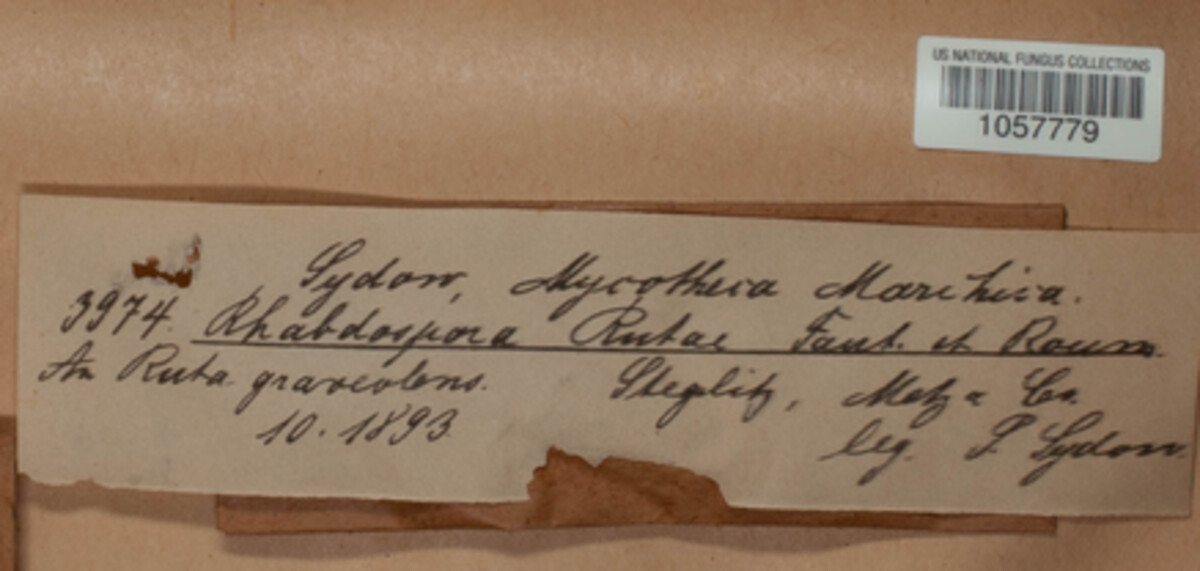 US NATIONAL FUNGUS COLLECTIONS
1057779
Sydow, Mycotheca Marchica.
3974. Rhabdospora Rutae Faut. et Roum.
An Ruta graveolens. Steglitz, Metz & Co.
10. 1893. leg. P. Sydow.